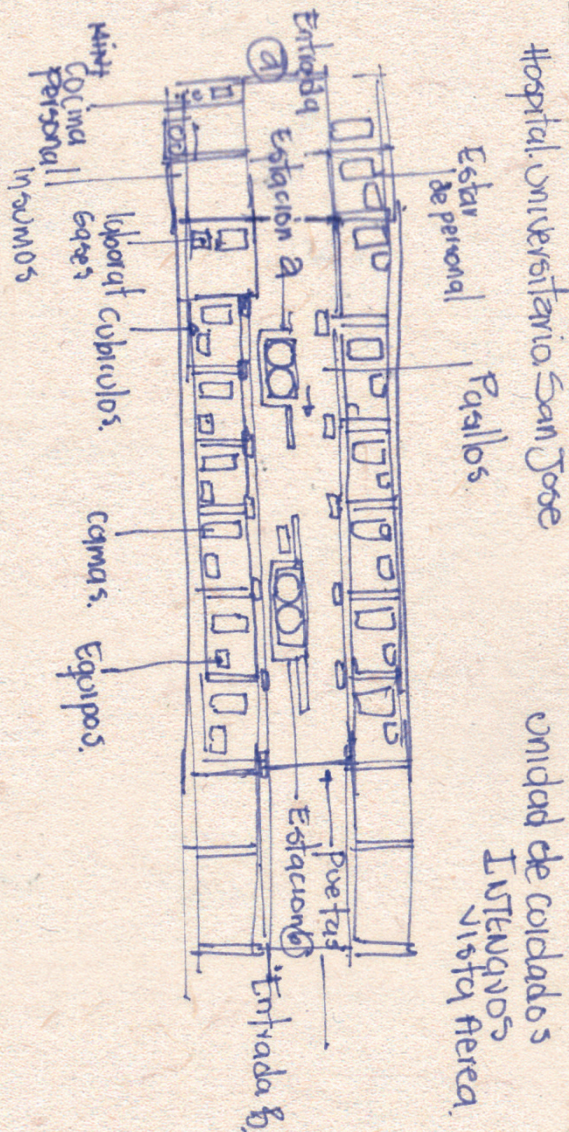 Hospital. Universitario. San Jose
Unidad de cuidados
INTENSIVOS
Vista Aerea.
Estar
de personal
Pasillos.
Entrada
a
Estacion a
Puetas
Estacion b
Entrada b.
Mini
Cocina
personal
Insumos
laborat
Gases
Cubiculos.
camas.
Equipos.